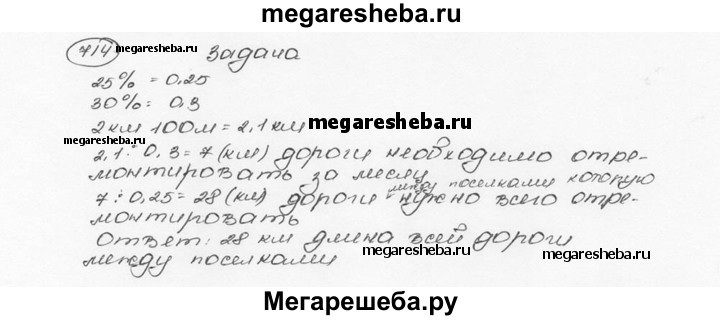 megaresheba.ru
714 megaresheba.ru Задача
25% = 0.25
30% = 0.3
2 км 100 м = 2,1 км megaresheba.ru
megaresheba.ru
2,1 : 0,3 = 7 (км) дороги необходимо отре-
монтировать за месяц
между поселками которую
7 : 0,25 = 28 (км) дороги нужно всего отре-
монтировать
Ответ: 28 км длина всей дороги
между поселками megaresheba.ru megaresheba.ru
Мегарешеба.ру